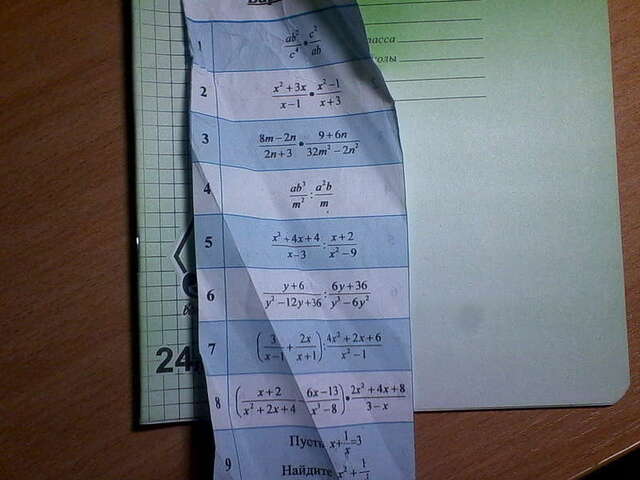 1 ab²/c⁴ • c²/ab
2 x² + 3x/x − 1 • x² − 1/x + 3
3 8m − 2n/2n + 3 • 9 + 6n/32m² − 2n²
4 ab³/m² : a²b/m
5 x² + 4x + 4/x − 3 : x + 2/x² − 9
6 y + 6/y² − 12y + 36 : 6y + 36/y³ − 6y²
7 (3/x − 1 + 2x/x + 1) : 4x² + 2x + 6/x² − 1
8 (x + 2/x² + 2x + 4 − 6x − 13/x³ − 8) • 2x² + 4x + 8/3 − x
Пусть x + 1/x = 3
9 Найдите x² +
24